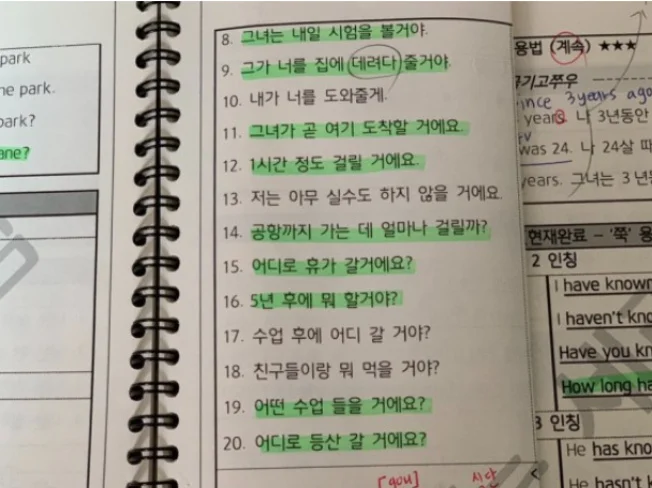 park
ne park.
park?
ane?
8. 그녀는 내일 시험을 볼거야.
9. 그가 너를 집에 데려다 줄거야.
10. 내가 너를 도와줄게.
11. 그녀가 곧 여기 도착할 거에요.
12. 1시간 정도 걸릴 거에요.
13. 저는 아무 실수도 하지 않을 거에요.
14. 공항까지 가는 데 얼마나 걸릴까?
15. 어디로 휴가 갈거에요?
16. 5년 후에 뭐 할거야?
17. 수업 후에 어디 갈 거야?
18. 친구들이랑 뭐 먹을 거야?
19. 어떤 수업 들을 거에요?
20. 어디로 등산 갈 거에요?
[gou] 식단
용법 (계속) ★★★
기고쭈우
ince 3years ago
years. 나 3년동안
was 24. 나 24살 때
years. 그녀는 3년
현재완료 – '쭉' 용
2 인칭
I have known
I haven't kno
Have you kn
How long ha
3 인칭
He has kno
He hasn't k